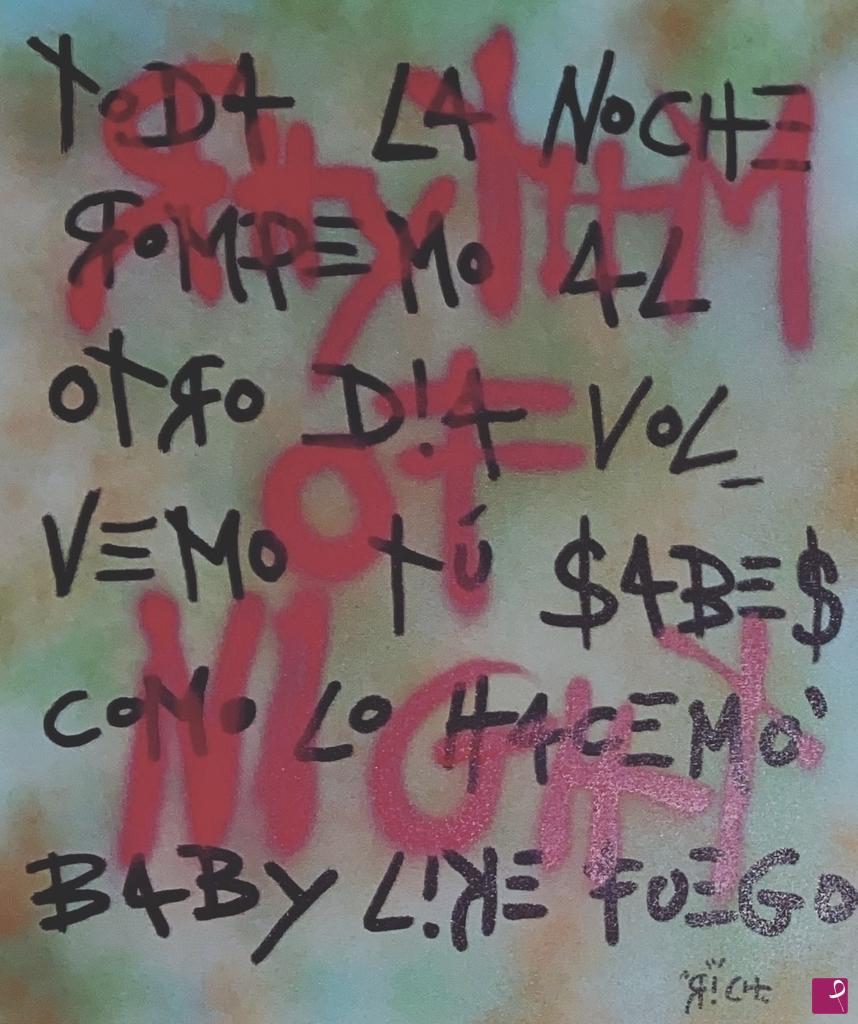 TODA LA NOCHE
ROMPEMO AL
OTRO D!A VOL_
VEMO TÚ $ABE$
COMO LO HACEMO'
BABY L!KE FUEGO
RHYTHM
OF
NIGHT
"R!CH